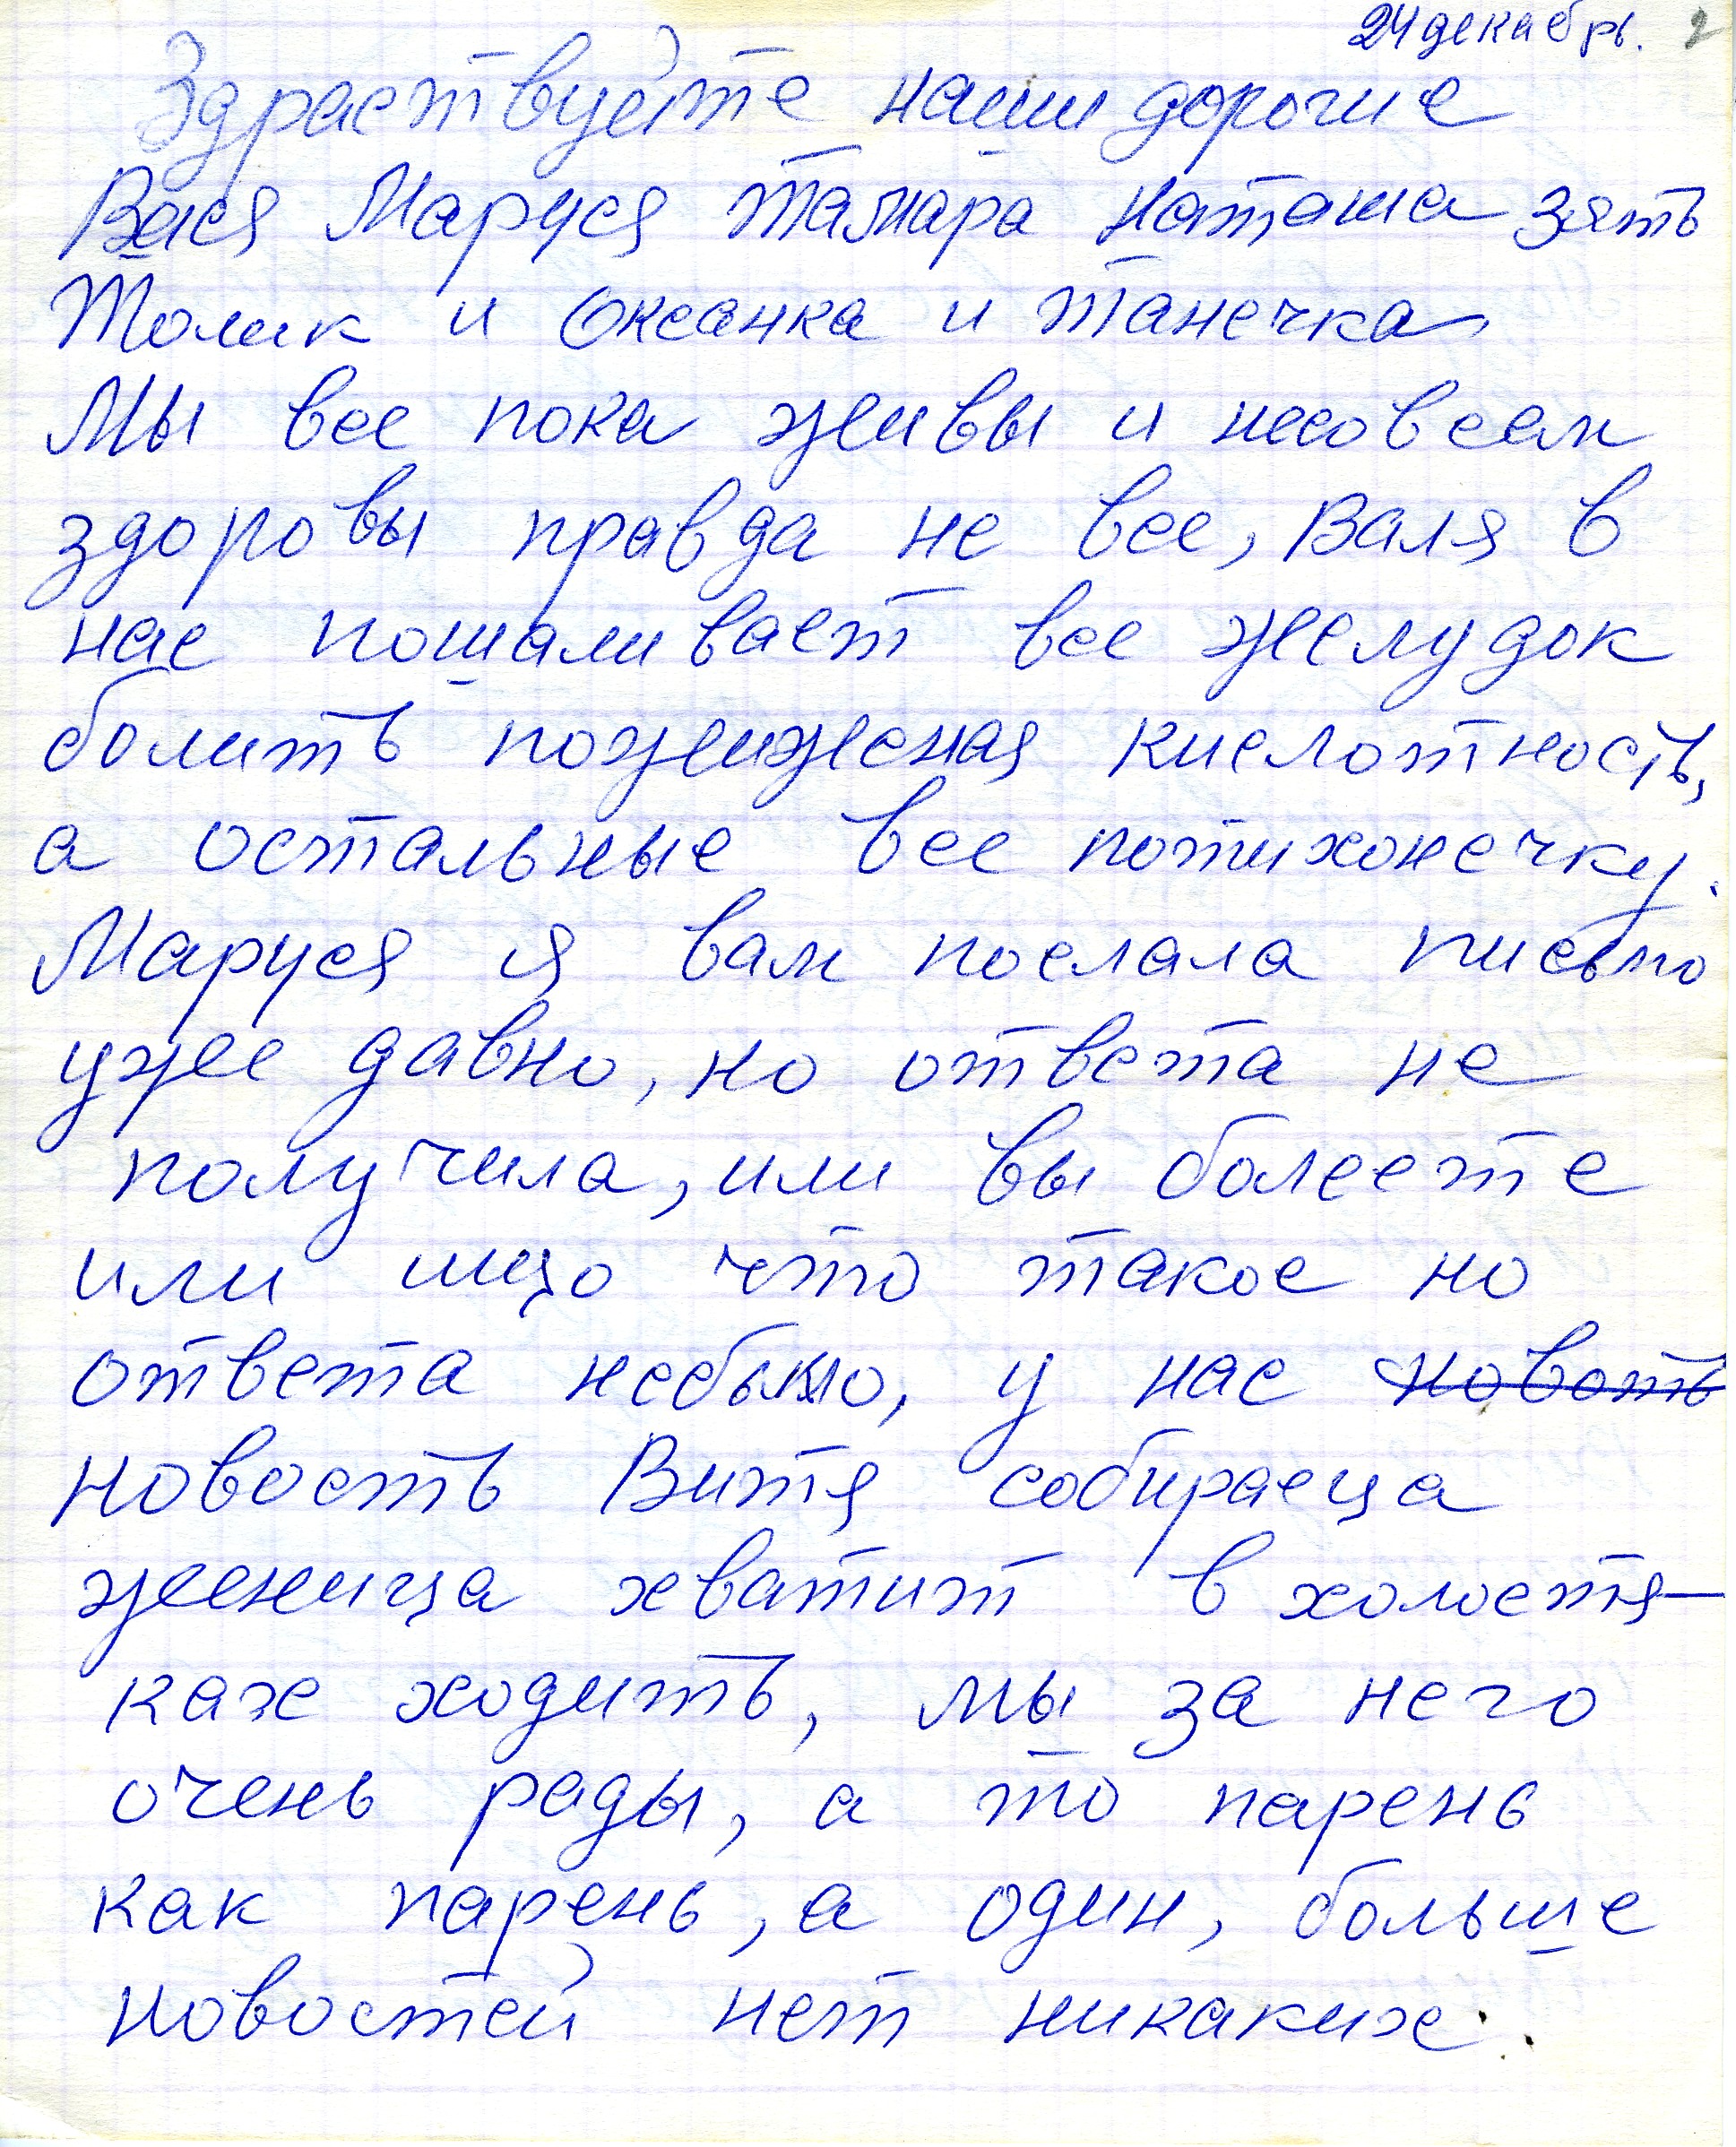 24 декабрь. 2
Здраствуйте наши дорогие
Вася Маруся Тамара Наташа зять
Толик и Оксанка и Танечка
Мы все пока живы и несовсем
здоровы правда не все, Валя в
нас пошаливает все желудок
болить пожиженая кислотность,
а остальные все потихонечку.
Маруся я вам послала письмо
уже давно, но ответа не
получила, или вы болеете
или що что такое но
ответа небыло, у нас новоть
новость Витя собираеца
женица хватит в холостя-
ках ходить, мы за него
очень рады, а то парень
как парень, а один, больше
новостей нет никаких.